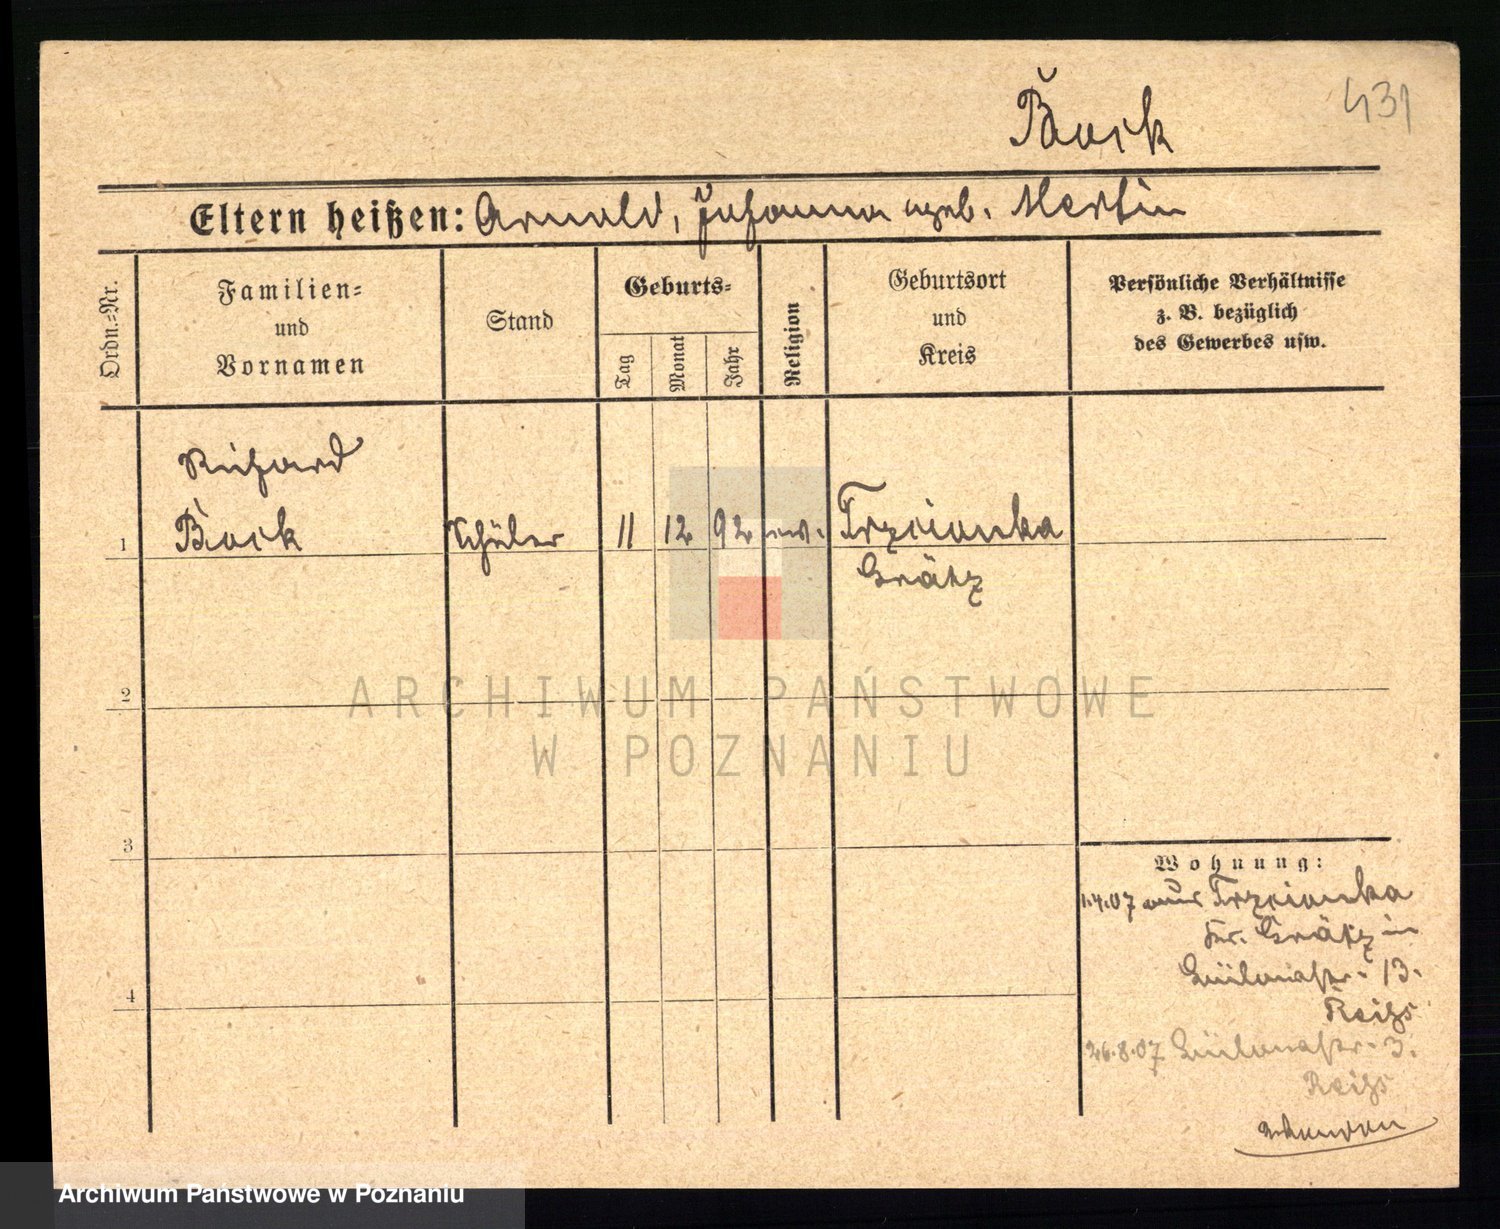 431
Bock
Eltern heißen: Arnold, Johanna geb. Mertin
Ordn.=Nr.
Familien=
und
Vornamen
Stand
Geburts=
Tag
Monat
Jahr
Religion
Geburtsort
und
Kreis
Persönliche Verhältnisse
z. B. bezüglich
des Gewerbes usw.
Richard
1 Bock Schüler 11 12 92 ev. Trzcionka
Grätz
2
3
4
Wohnung:
1.4.07 aus Trzcionka
Kr. Grätz in
13.
26.8.07 3.
ARCHIWUM PAŃSTWOWE
W POZNANIU
Archiwum Państwowe w Poznaniu